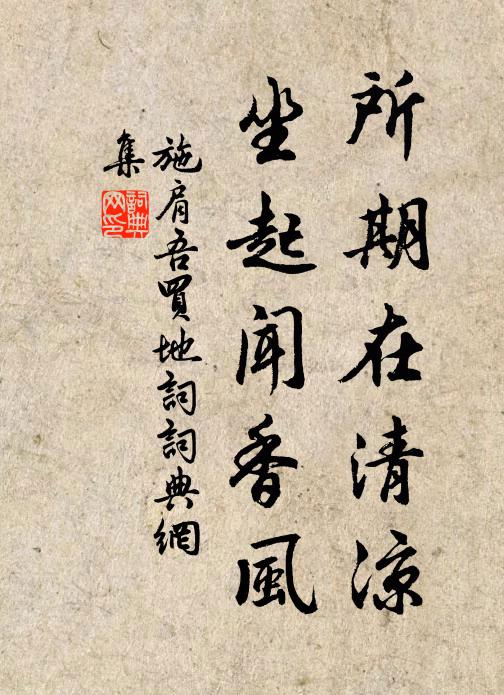 所期在清凉
坐起聞香風
施肩吾買地詞詞典網
集
詞典
网印